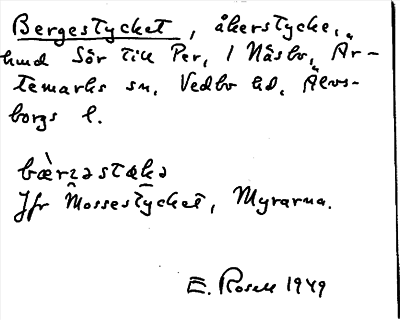 Bergestycket, åkerstycke,
hmd Sör till Per, 1 Näsbo, Är-
temarks sn, Vedbo hd, Älvs-
borgs l.
bær̀ɜəstəkə
Jfr Mossestycket, Myrarna.
E. Rosell 1949